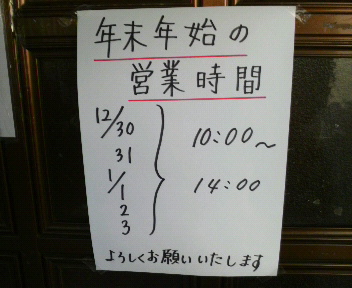 年末年始の
営業時間
12/30
31
1/1
2
3
10:00～
14:00
よろしくお願いいたします